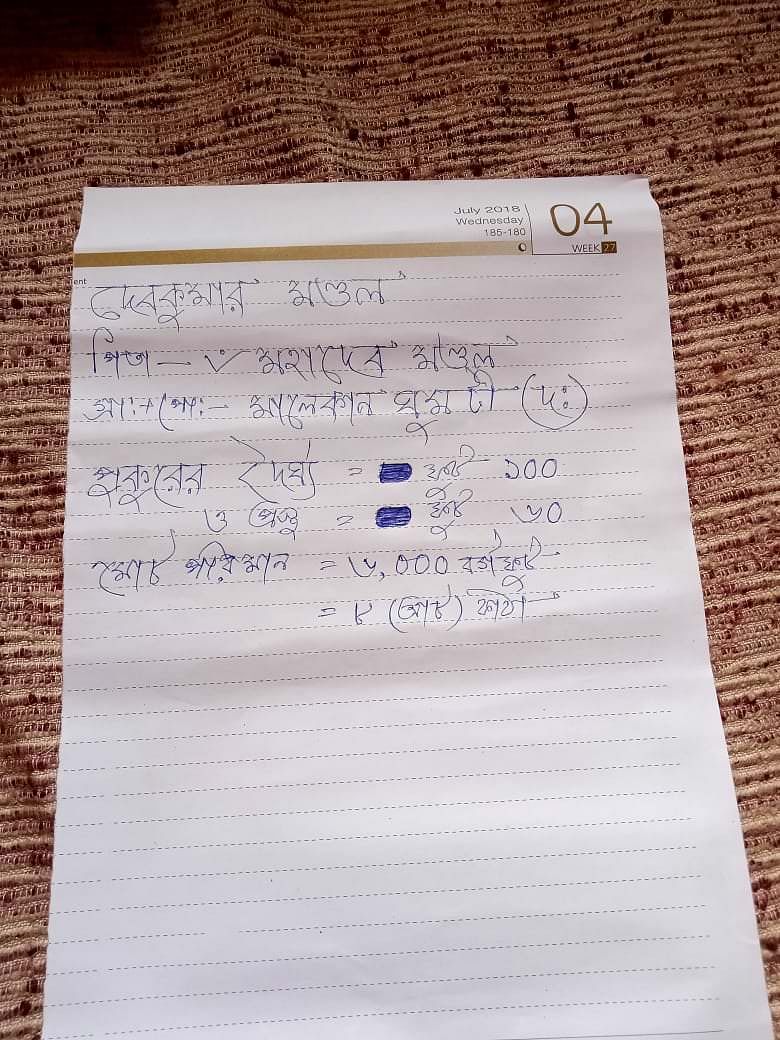 July 2018
Wednesday
185-180
04
WEEK 27
ent
দেবকুমার মণ্ডল
পিতা - ৺মহাদেব মণ্ডল
গ্রাঃ+পোঃ- মালেকান ঘুমটী (দঃ)
পুকুরের দৈর্ঘ্য = ফুট ১০০
ও প্রস্থ = ফুট ৬০
মোট পরিমান = ৬,০০০ বর্গফুট
= ৮ (আট) কাঠা